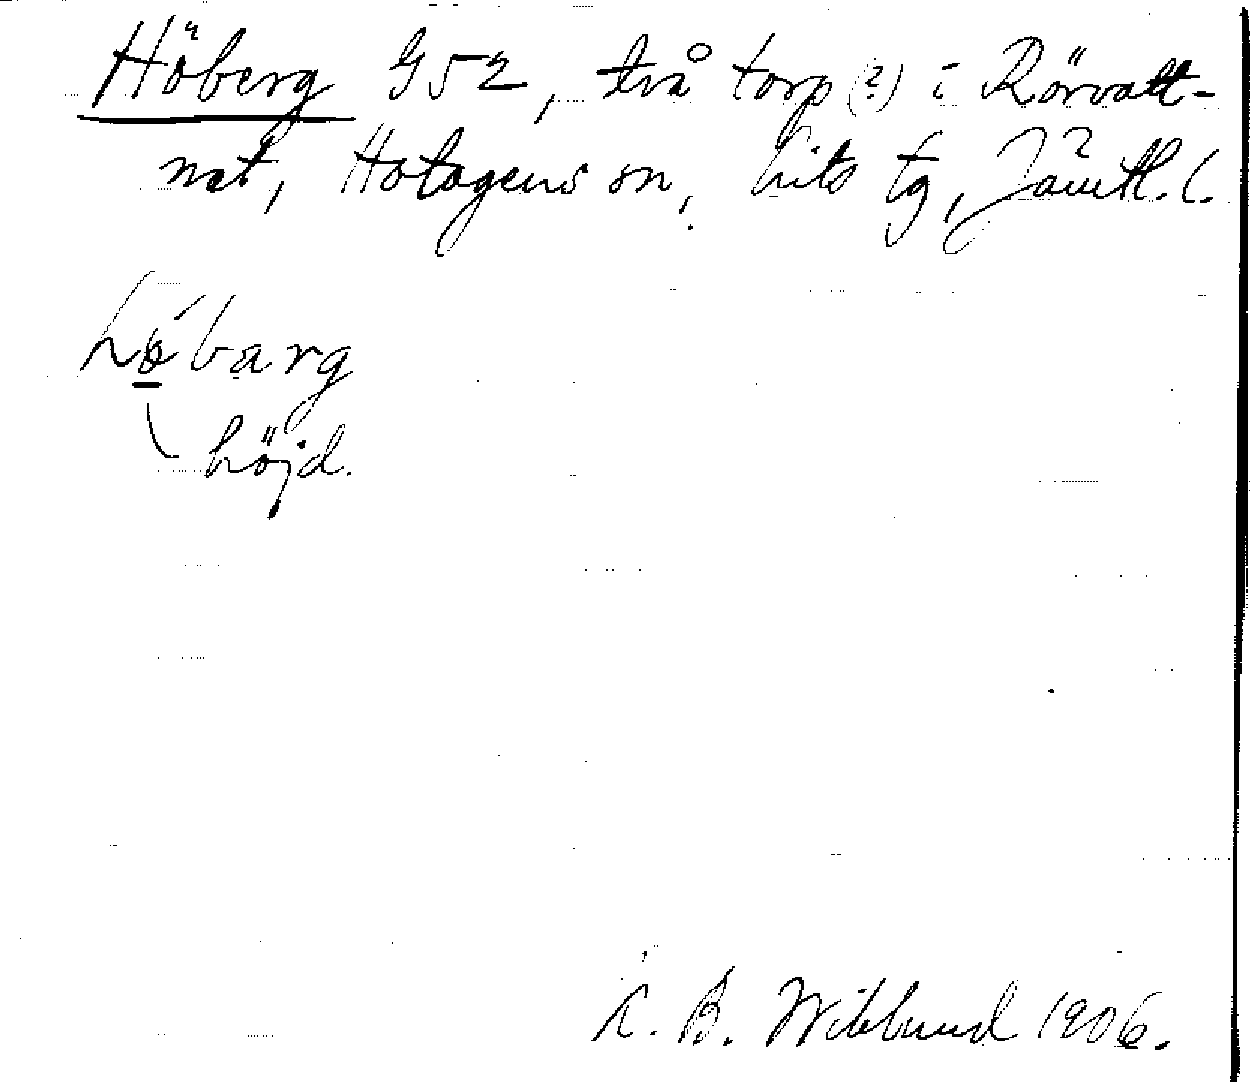 Höberg G52, två torp (?) i Rörvatt-
net, Hotagens sn, Lits tg, Jämtl. l.
hö́barg
höjd.
K. B. Wiklund 1906.